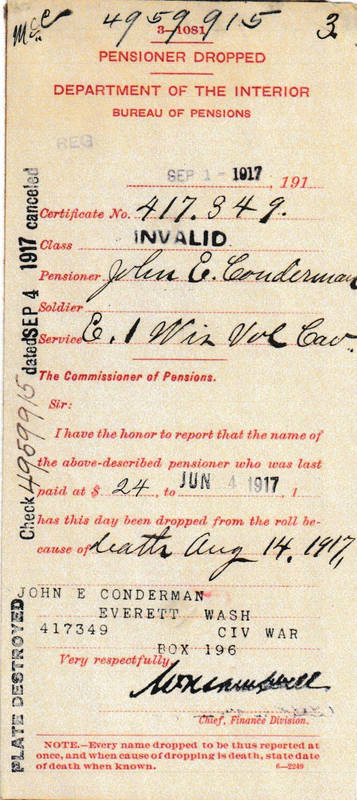 4959915
3-1081
3.
PENSIONER DROPPED
DEPARTMENT OF THE INTERIOR
BUREAU OF PENSIONS
REG
SEP 1 - 1917, 191
Certificate No. 417.349.
Class INVALID
Pensioner John E. Conderman
Soldier
Service E. 1 Wis Vol Cav.
The Commissioner of Pensions.
Sir:
I have the honor to report that the name of
the above-described pensioner who was last
paid at $ 24, to JUN 4 1917, 1
has this day been dropped from the roll be-
cause of death Aug 14, 1917,
JOHN E CONDERMAN
EVERETT WASH
417349 CIV WAR
BOX 196
Very respectfully,
Chief, Finance Division.
NOTE.—Every name dropped to be thus reported at
once, and when cause of dropping is death, state date
of death when known.
6—2249
Check 4959915 dated SEP 4 1917 canceled
PLATE DESTROYED